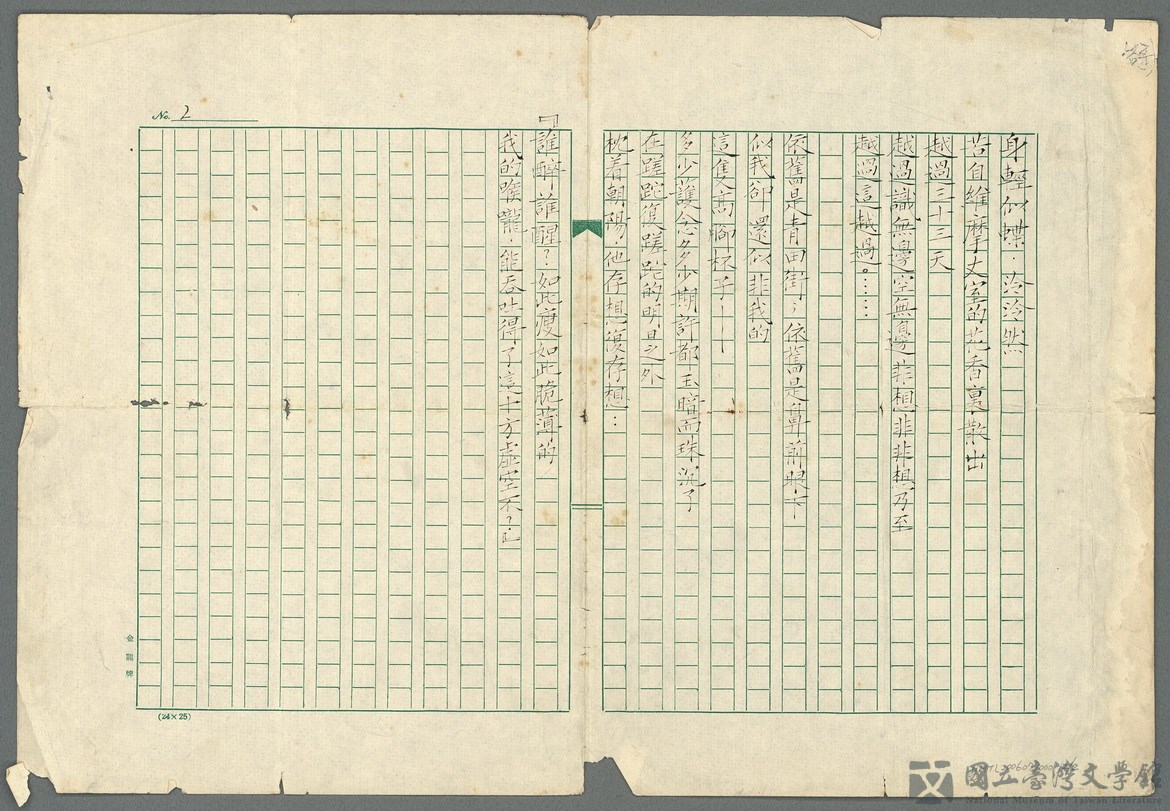 身輕似蝶．泠泠然
若自維摩丈室的花香裏散出
越過三十三天
越過識無邊空無邊非想非非想乃至
越過這越過。……
依舊是青田街；依舊是鼻前眼下
似我卻還似非我的
這隻高腳杯子──
多少護念多少期許都玉暗而珠沉了
在蹉跎復蹉跎的明日之外
枕着朝陽．他存想復存想：
「誰醉誰醒？如此瘦如此脆薄的
我的喉嚨．能吞吐得了這十方虛空不？」
No. 2
金龍牌
(24×25)
國立臺灣文學館
National Museum of Taiwan Literature